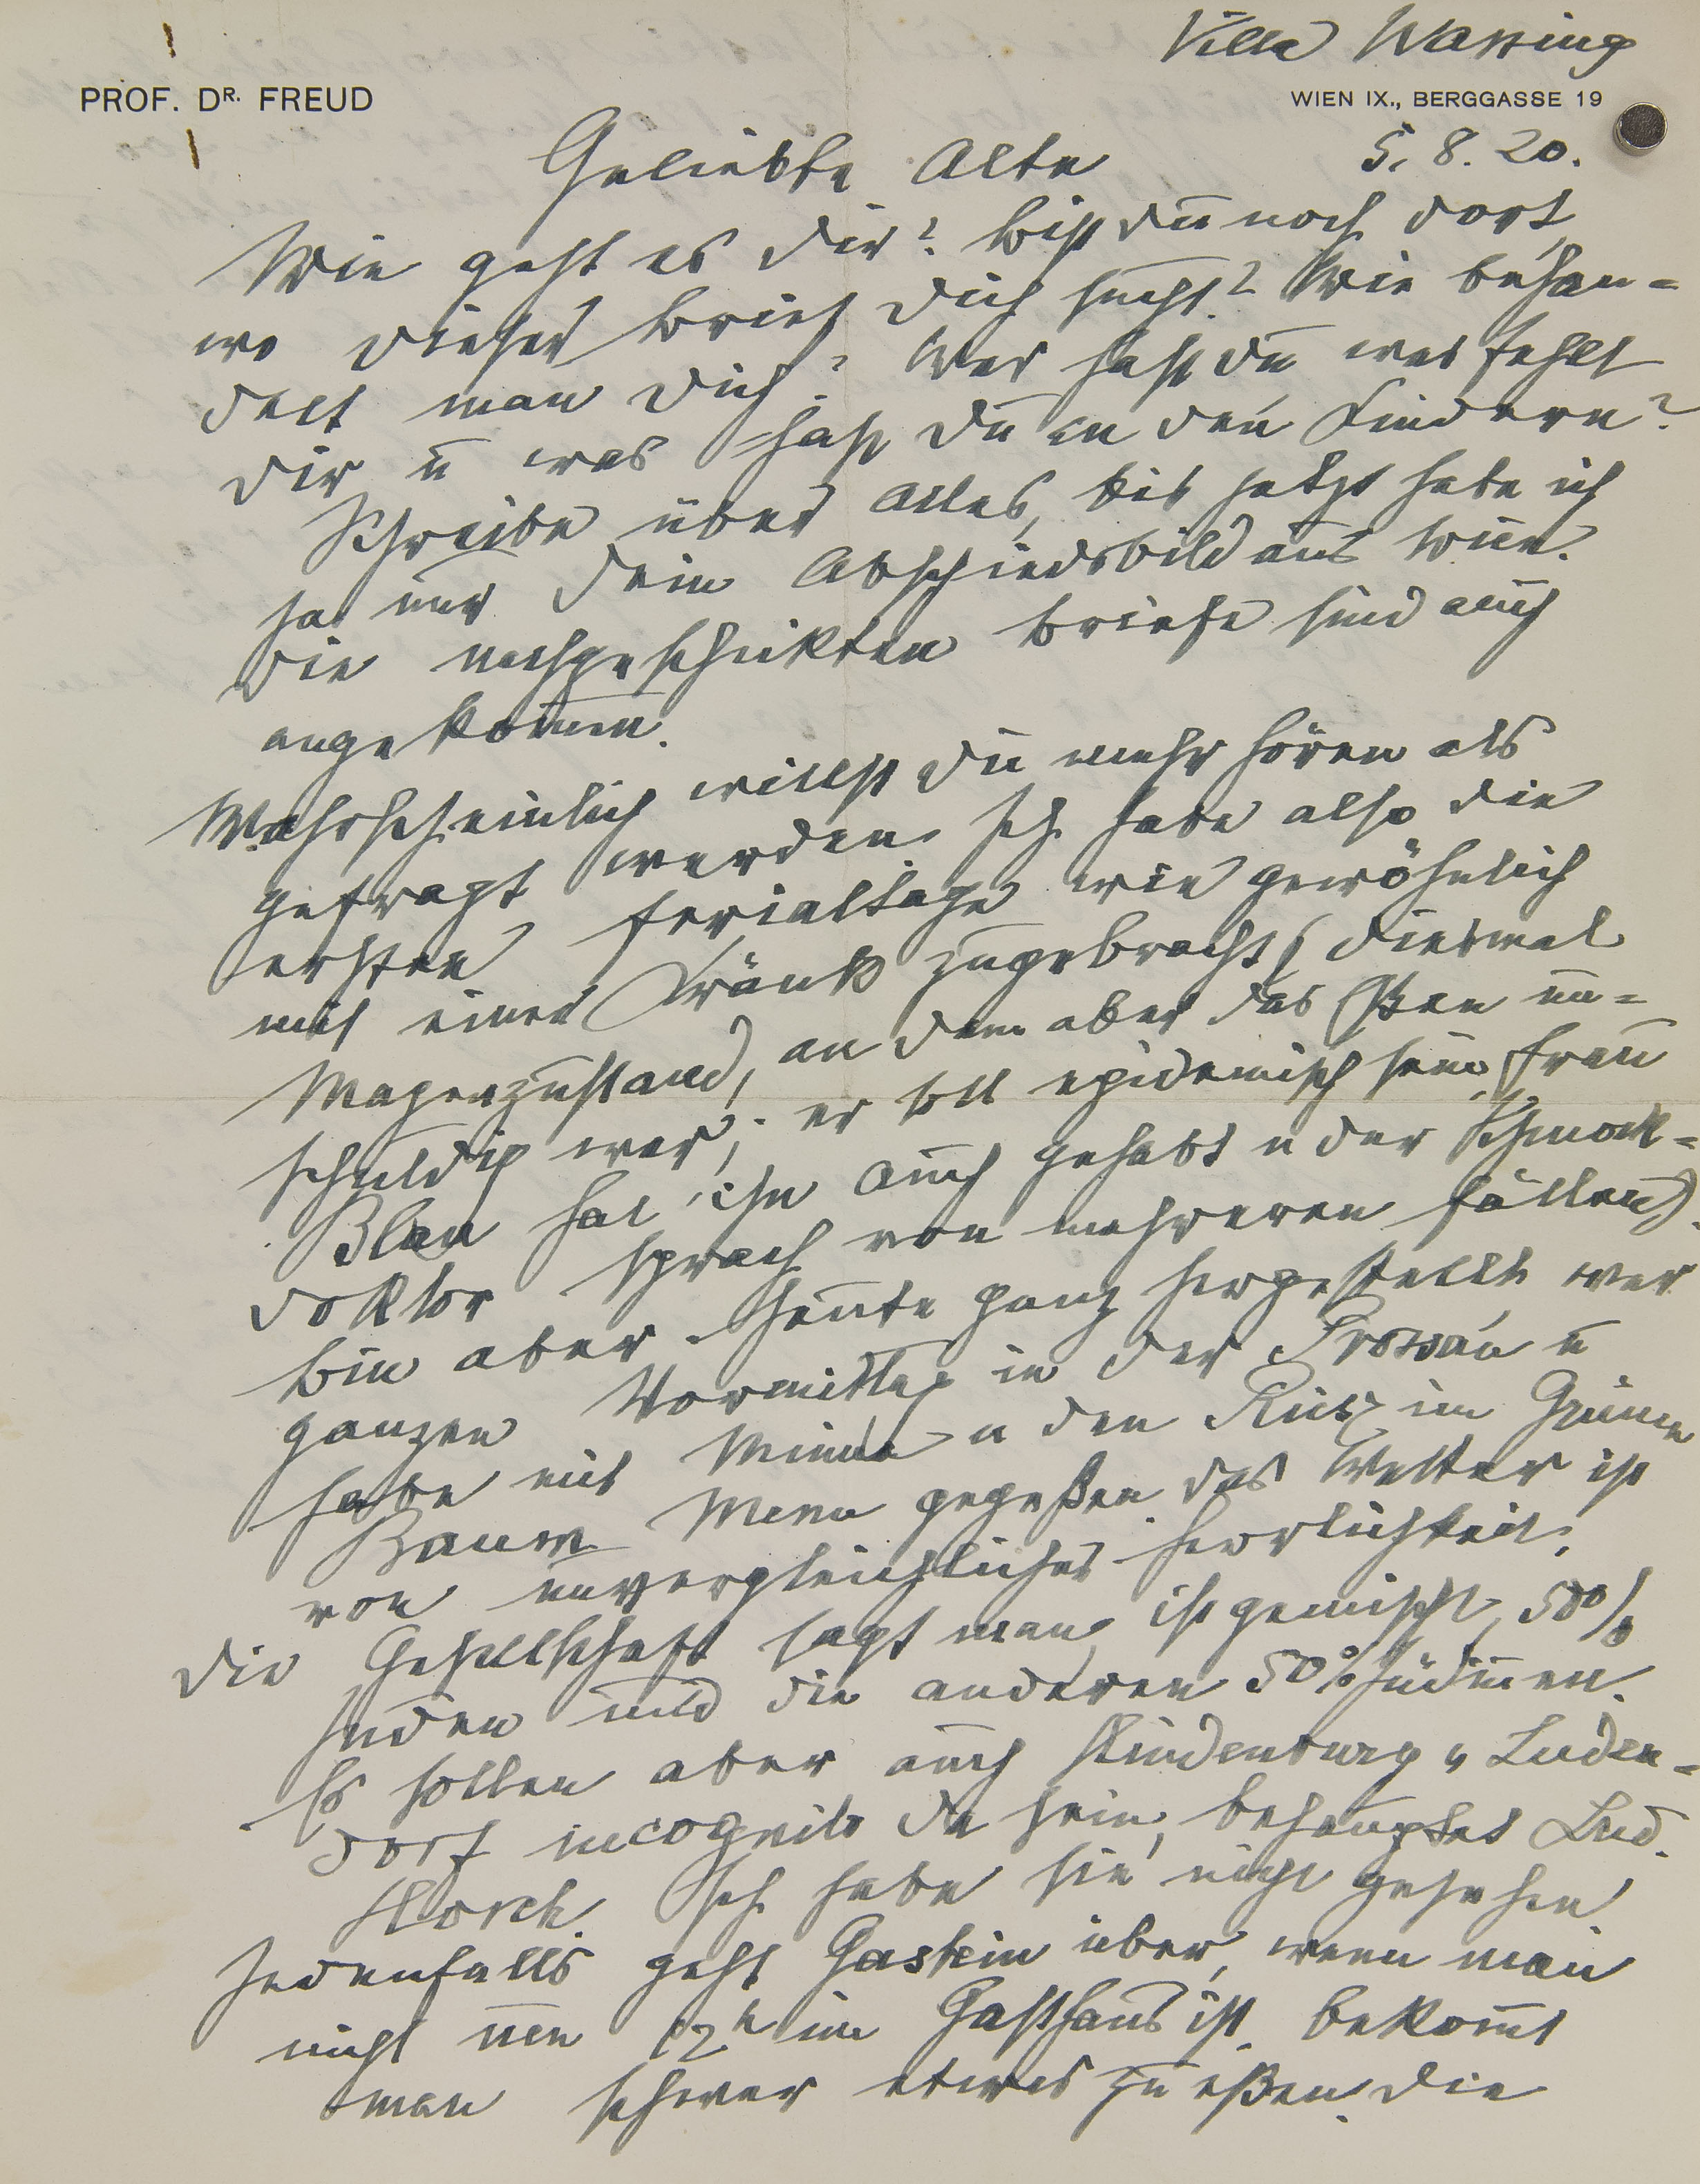 Villa Wassing
PROF. DR. FREUD
WIEN IX., BERGGASSE 19
5. 8. 20.
Geliebte Alte
Wie geht es dir? Bist du noch dort,
wo dieser Brief dich sucht? Wie behan=
delt man dich? Was hast du was fehlt
dir u was hast du an den Kindern?
Schreibe über alles, bis jetzt habe ich
ja nur dein Abschiedsbild aus Wien.
Die nachgeschickten Briefe sind auch
angekom̄en.
Wahrscheinlich willst du mehr hören als
gefragt werden. Ich habe also die
ersten Ferialtage wie gewöhnlich
mit einer Kränk zugebracht (diesmal
Magenzustand, an dem aber das Essen un=
schuldig war; er soll epidemisch sein, Frau
Blau hat ihn auch gehabt u der Schmock=
doktor sprach von mehreren Fällen).
bin aber heute ganz hergestellt war
ganzen Vormittag in der Prossau u
habe mit Minna u den Rie im Grünen
Baum Menu gegeßen. das Wetter ist
von unvergleichlicher Herrlichkeit.
Die Gesellschaft sagt man, ist gemischt, 50%
Juden und die anderen 50% Jüdinnen.
Es sollen aber auch Hindenburg u Luden=
dorf incognito da sein, behauptet Lud.
Horch. Ich habe sie nicht gesehen.
Jedenfalls geht Gastein über, wenn man
nicht um 12h im Gasthaus ist, bekom̄t
man schwer etwas zu eßen. Die